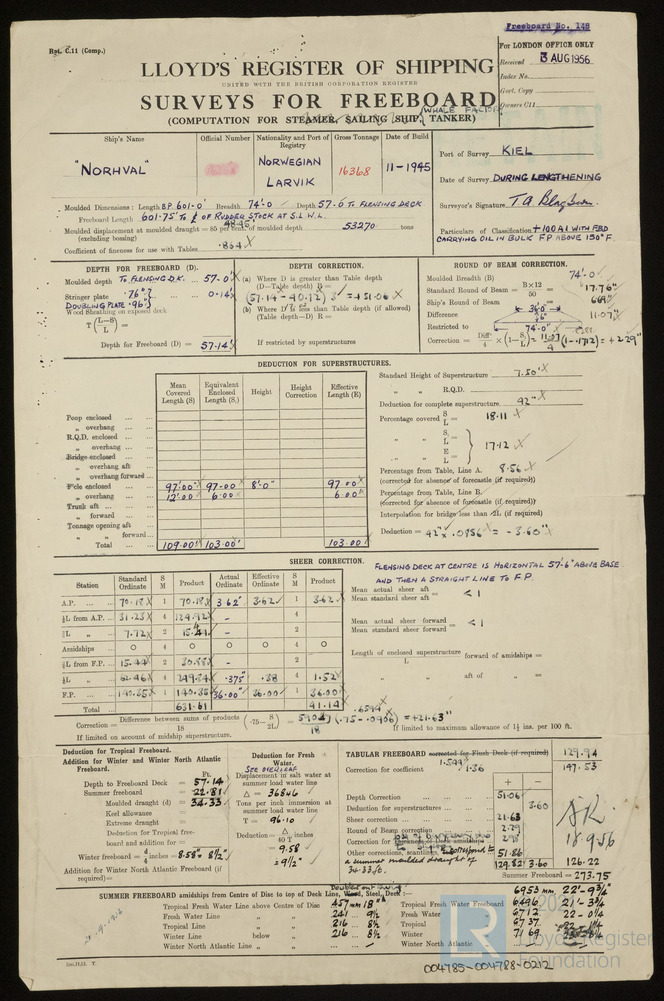 Freeboard No. 148
Rpt. C.11 (Comp.)
For LONDON OFFICE ONLY
Received 3 AUG 1956
Index No.
Govt. Copy
Owners C11
LLOYD'S REGISTER OF SHIPPING
UNITED WITH THE BRITISH CORPORATION REGISTER
SURVEYS FOR FREEBOARD
WHALE FACTORY
(COMPUTATION FOR STEAMER, SAILING SHIP, TANKER)
Ship's Name
Official Number
Nationality and Port of Registry
Gross Tonnage
Date of Build
"NORHVAL"
NORWEGIAN
LARVIK
16368
11-1945
Port of Survey KIEL
Date of Survey DURING LENGTHENING
Surveyor's Signature
Particulars of Classification +100A1 WITH FBD
CARRYING OIL IN BULK F.P. ABOVE 150°F.
Moulded Dimensions: Length BP 601.0' Breadth 74'.0 Depth 57.0 TO FLENSING DECK
Freeboard Length 601.75' TO ℄ OF RUDDER STOCK AT S.L.W.L.
Moulded displacement at moulded draught = 85 per cent. of moulded depth 53270 tons
(excluding bossing)
Coefficient of fineness for use with Tables .864
DEPTH FOR FREEBOARD (D).
Moulded depth TO FLENSING DK. 57.0'
Stringer plate .76"
DOUBLING PLATE .96" 0.14'
Wood Sheathing on exposed deck
T (L-S / L) =
Depth for Freeboard (D) = 57.14'
DEPTH CORRECTION.
(a) Where D is greater than Table depth
(D-Table depth) R =
(57.14 - 40.12) 3 = +51.06
(b) Where D is less than Table depth (if allowed)
(Table depth-D) R =
If restricted by superstructures
ROUND OF BEAM CORRECTION.
Moulded Breadth (B) 74'.0
Standard Round of Beam = B×12 / 50 = 17.76"
Ship's Round of Beam = 6.69"
Difference 11.07"
Restricted to
Correction = Diff / 4 × (1 - S₁/L) = 11.07 / 4 (1-.1712) = +2.29"
DEDUCTION FOR SUPERSTRUCTURES.
Mean Covered Length (S)
Equivalent Enclosed Length (S₁)
Height
Height Correction
Effective Length (E)
Poop enclosed
„ overhang
R.Q.D. enclosed
„ overhang
Bridge enclosed
„ overhang aft
„ overhang forward
F'cle enclosed 97.00' 97.00 8'.0" 97.00
„ overhang 12.00' 6.00 6.00
Trunk aft
„ forward
Tonnage opening aft
„ „ forward
Total 109.00' 103.00' 103.00
Standard Height of Superstructure 7.50'
„ „ R.Q.D.
Deduction for complete superstructure 42"
Percentage covered S/L = 18.11
„ „ S₁/L = 17.12
„ „ E/L =
Percentage from Table, Line A. 8.56
(corrected for absence of forecastle (if required))
Percentage from Table, Line B.
(corrected for absence of forecastle (if required))
Interpolation for bridge less than .2L (if required)
Deduction = 42" × .0856 = -3.60"
SHEER CORRECTION.
Station
Standard Ordinate
S M
Product
Actual Ordinate
Effective Ordinate
S M
Product
A.P. 70.18 1 70.18 3.62" 3.62 1 3.62
⅙L from A.P. 31.23 4 124.92 - 4
⅓L „ 7.72 2 15.44 - 2
Amidships 0 4 0 0 0 4 0
⅓L from F.P. 15.44 2 30.88 - 2
⅙L „ 62.46 4 249.84 .375" .38 4 1.52
F.P. 140.35 1 140.35 36.00" 36.00 1 36.00
Total 631.61 41.14
FLENSING DECK AT CENTRE IS HORIZONTAL 57'.6" ABOVE BASE
AND THEN A STRAIGHT LINE TO F.P.
Mean actual sheer aft / Mean standard sheer aft = < 1
Mean actual sheer forward / Mean standard sheer forward = < 1
Length of enclosed superstructure / L forward of amidships =
„ „ aft of „ =
Correction = Difference between sums of products / 18 (.75 - S / 2L) = 590.47 / 18 (.75-.0906) = +21.63"
.6594
If limited on account of midship superstructure.
If limited to maximum allowance of 1½ ins. per 100 ft.
Deduction for Tropical Freeboard.
Addition for Winter and Winter North Atlantic Freeboard.
Ft.
Depth to Freeboard Deck = 57.14
Summer freeboard = 22.81
Moulded draught (d) = 34.33
Keel allowance =
Extreme draught =
Deduction for Tropical freeboard and addition for
Winter freeboard = d/4 inches = 8.58" = 8½"
Addition for Winter North Atlantic Freeboard (if required) =
Deduction for Fresh Water.
SEE OVERLEAF
Displacement in salt water at summer load water line
Δ = 36846
Tons per inch immersion at summer load water line
T = 96.10
Deduction = Δ / 40 T inches
= 9.58
= 9½"
TABULAR FREEBOARD corrected for Flush Deck (if required) 129.94
Correction for coefficient 1.544 / 1.36 147.53
+ -
Depth Correction 51.06
Deduction for superstructures 3.60
Sheer correction 21.63
Round of Beam correction 2.29
Correction for Thickness of deck amidships 2.98
Other corrections, scantlings, To correspond to 51.86
a summer moulded draught of
34.33 ft.
129.82 3.60 126.22
Summer Freeboard = 273.75
AK
18.9.56
SUMMER FREEBOARD amidships from Centre of Disc to top of Deck Line, Wood, Steel, Deck :- 6953 mm. 22'-9¾"
Tropical Fresh Water Line above Centre of Disc 457 mm 18"
Fresh Water Line „ „ 241 9½
Tropical Line „ „ 216 8½
Winter Line below „ 216 8½
Winter North Atlantic Line „ „
Tropical Fresh Water Freeboard 6496 21'-3¾
Fresh Water „ 6712 22-0¼
Tropical „ 6737
Winter „ 7169
Winter North Atlantic „
LR
Lloyd's Register
Foundation
004785-004788-0212